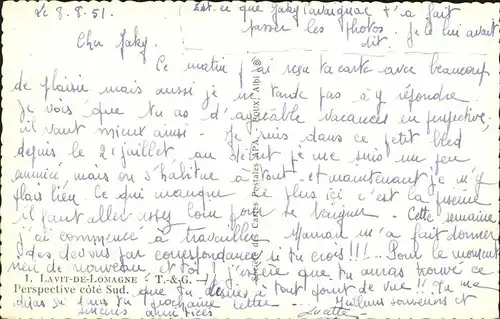 Le 8.8.51.
Est ce que Jaky Cavaignac t'a fait
passer les photos. Je lui avait
dit.
Cher Jaky.
Ce matin j'ai reçu ta carte avec beaucoup
de plaisir mais aussi je ne tarde pas à y répondre
Je vois que tu as d'agréable vacances en perspective,
il vaut mieux ainsi. Je suis dans ce petit bled
depuis le 21 juillet, au début je me suis un peu
ennuiée mais on s'habitue à tout et maintenant je m'y
plais bien. Ce qui manque le plus ici c'est la piscine
il faut aller assez loin pour se baigner. Cette semaine
j'ai commencé à travailler Maman m'a fait donner
des devoirs par correspondance si tu crois!!! Pour le moment
rien de nouveau et toi! j'espère que tu auras trouvé ce
que tu désires à tout point de vue!! Tu me
diras ça dans ta prochaine lettre Meilleurs souvenirs et
sincères amitiés
Lucette
LAVIT-DE-LOMAGNE - T.-&-G. -
Perspective côté Sud.
Société des Cartes Postales A.P.A. - Poux, Albi